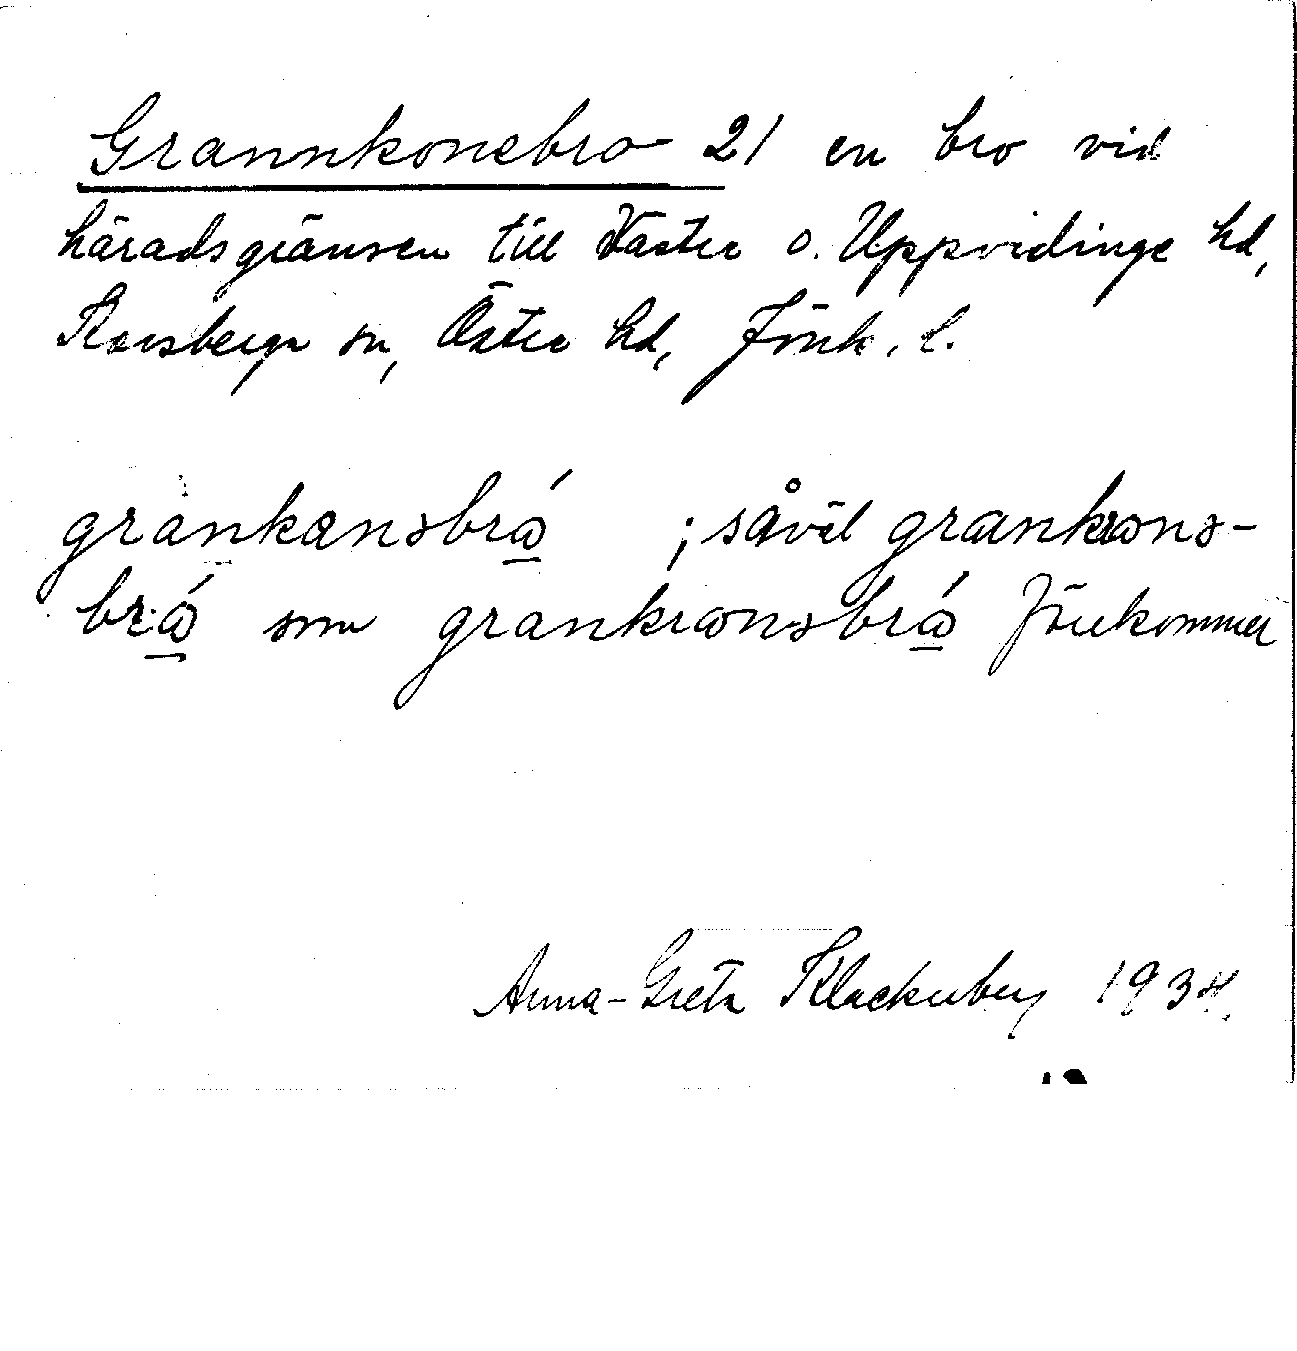 Grannkonebro 21 en bro vid
häradsgränsen till Väster o. Uppvidinge hd,
Korsberga sn, Öster hd, Jönk. l.
grankənsbró ; såväl grankrons-
bró som grankronsbró förekommer
Anna-Greta Klackenberg 1934.